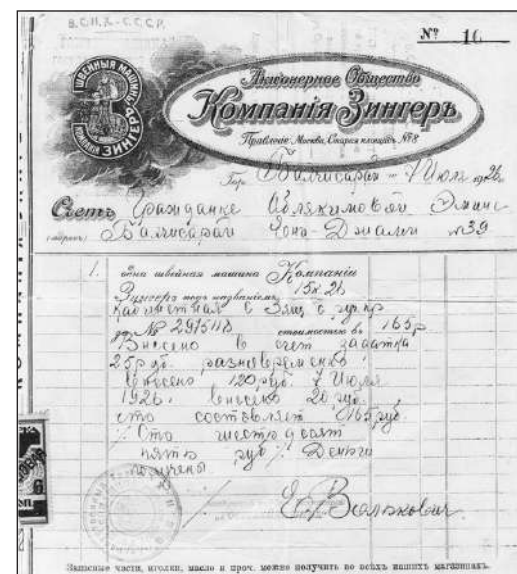 В.С.Н.Х. - С.С.С.Р.
№ 10
ШВЕЙНЫЯ МАШИНЫ
КОМПАНІИ ЗИНГЕРЪ
Акціонерное Общество
Компанія Зингеръ
Правленіе: Москва, Старая площадь, № 8
Гор. Бахчисарай 7 Июля 1926.
Счетъ Гражданке Аблякимовой Эмине
(адресъ) Бахчисарай № 39
1. одна швейная машина Компаніи
Зингеръ подъ названіемъ 15х26
кабинетная с 3 ящ с
№ стоимостью въ 165 р
Внесено в счет задатка
25 руб. разновременно
внесено 120 руб. 7 Июля
1926. внесено 20 руб.
что составляет 165 руб.
/. Сто шестьдесят
пять руб /. Деньги
получены
Запасные части, иголки, масло и проч. можно получить во всѣхъ нашихъ магазинахъ.